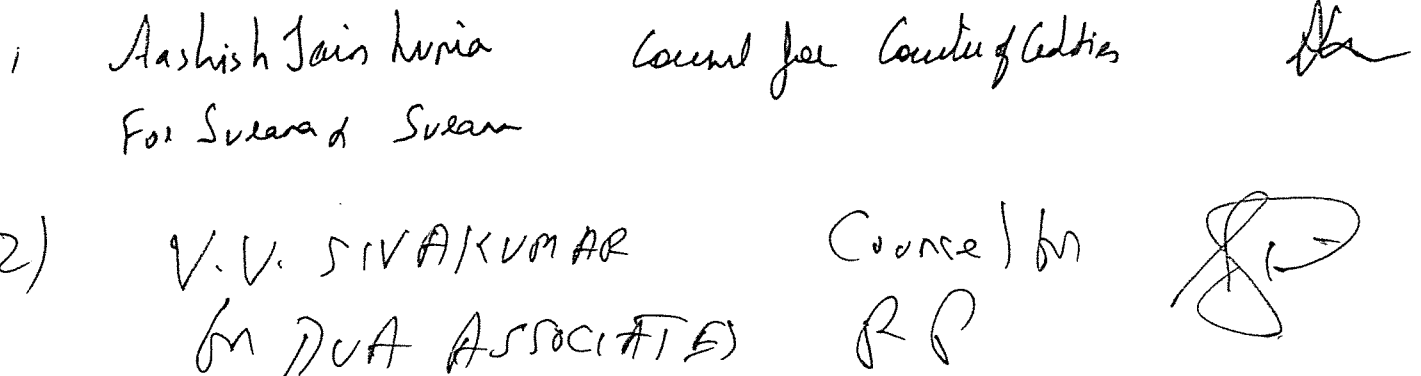 1 Aashish Jain Lunia Counsel for Committee of Creditors
For Surana & Surana
2) V.V. SIVAKUMAR Counsel for
for DUA ASSOCIATES RP